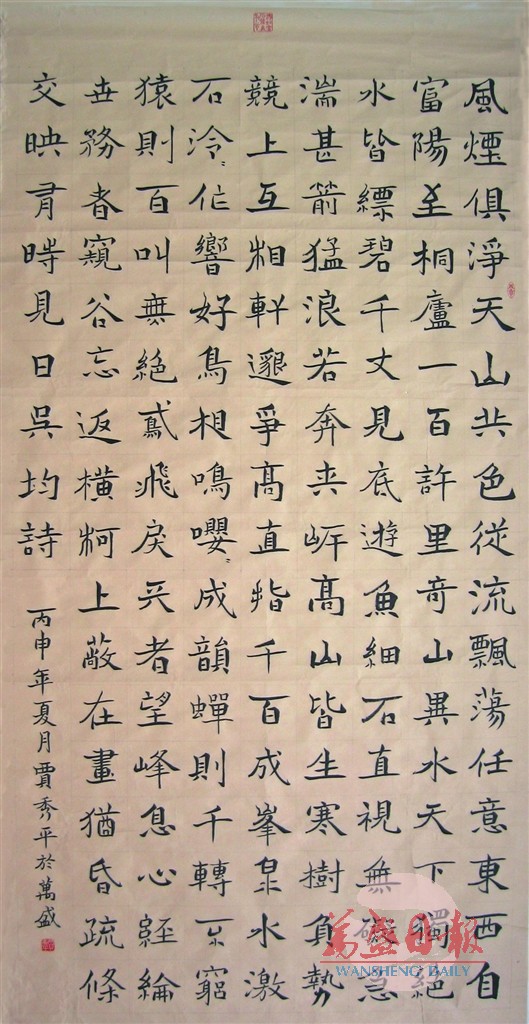 風煙俱淨天山共色從流飄蕩任意東西自
富陽至桐廬一百許里奇山異水天下獨絕
水皆縹碧千丈見底遊魚細石直視無礙急
湍甚箭猛浪若奔夾岸高山皆生寒樹負勢
競上互相軒邈爭高直指千百成峯泉水激
石泠〻作響好鳥相鳴嚶〻成韻蟬則千轉不窮
猿則百叫無絕鳶飛戾天者望峰息心經綸
世務者窺谷忘返橫柯上蔽在晝猶昏疏條
交映有時見日吳均詩
丙申年夏月賈秀平於萬盛
萬盛日報
WANSHENG DAILY